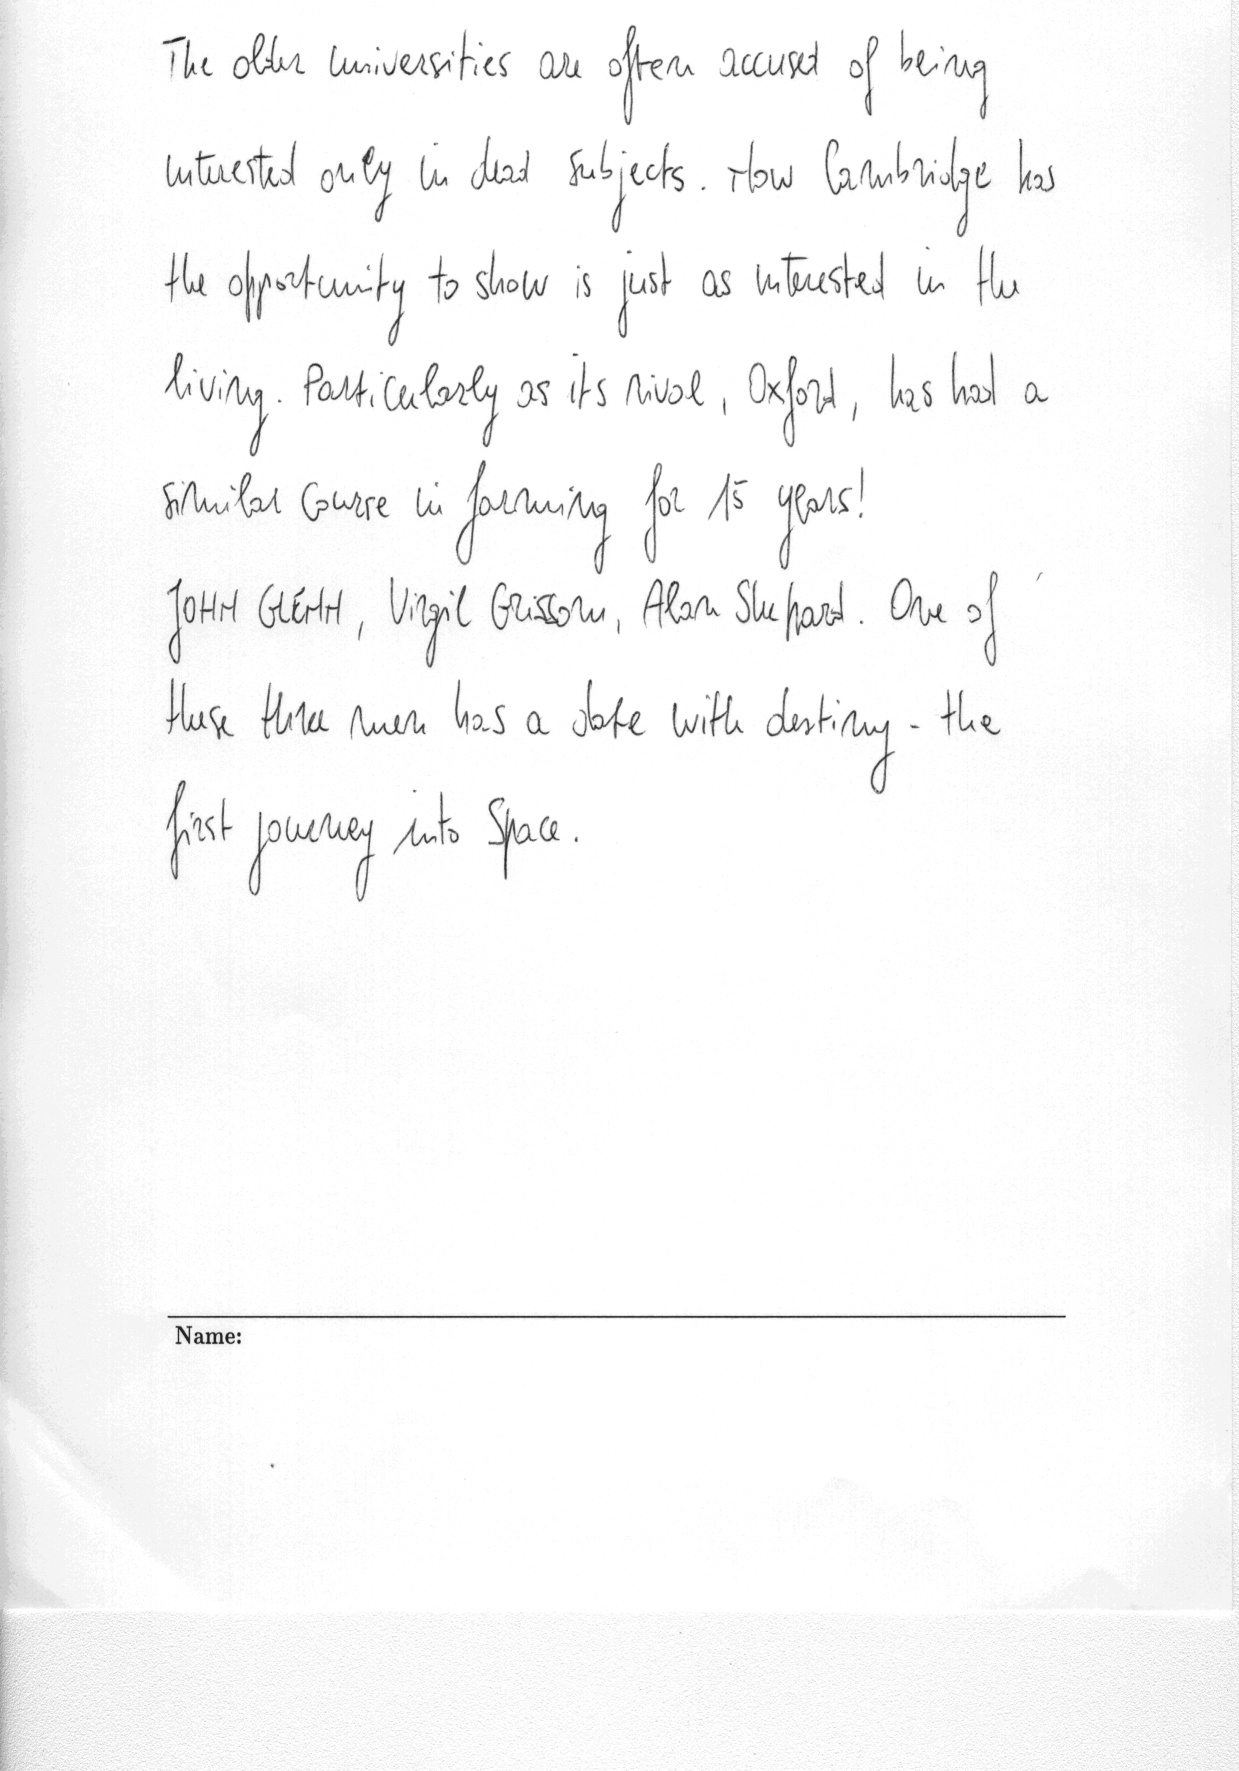 The older universities are often accused of being
interested only in dead subjects. Now Cambridge has
the opportunity to show is just as interested in the
living. Particularly as its rival, Oxford, has had a
similar course in farming for 15 years!
JOHN GLENN, Virgil Grissom, Alan Shepard. One of
these three men has a date with destiny - the
first journey into Space.
Name: